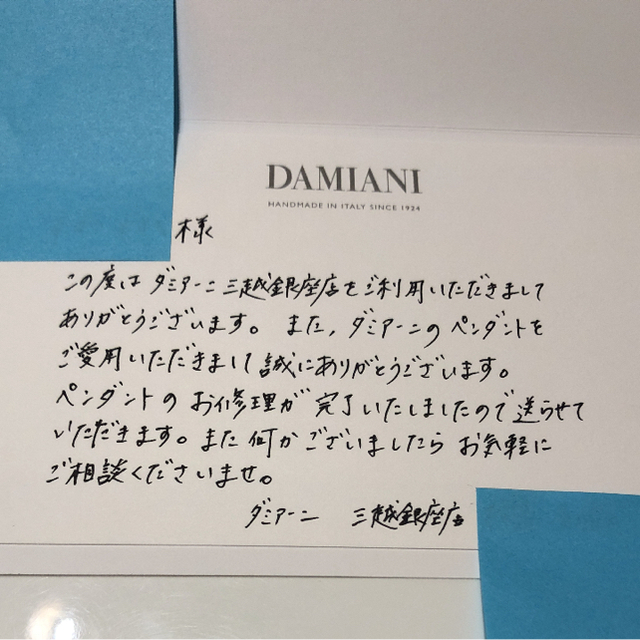 DAMIANI
HANDMADE IN ITALY SINCE 1924
様
この度は ダミアーニ 三越銀座店をご利用いただきまして
ありがとうございます。また、ダミアーニのペンダントを
ご愛用いただきまして誠にありがとうございます。
ペンダントの お修理が 完了いたしましたので送らせて
いただきます。また何かございましたら お気軽に
ご相談くださいませ。
ダミアーニ 三越銀座店